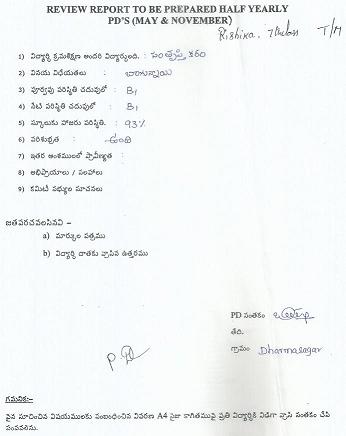 REVIEW REPORT TO BE PREPARED HALF YEARLY
PD'S (MAY & NOVEMBER)
Rishika, 7th class T/M
1) విద్యార్థి క్రమశిక్షణ అందరి విద్యార్థులది. : సంతృప్తి కరం
2) వినయ విధేయతలు : బాగున్నాయి
3) పూర్వపు పరిస్థితి చదువులో : B1
4) నేటి పరిస్థితి చదువులో : B1
5) స్కూలుకు హాజరు పరిస్థితి. : 93%
6) పరిశుభ్రత : ఉంది
7) ఇతర అంశములలో ప్రావీణ్యత :
8) అభిప్రాయాలు / సలహాలు
9) కమిటీ సభ్యుల సూచనలు
జతపరచవలసినవి –
a) మార్కుల పత్రము
b) విద్యార్థి దాతకు వ్రాసిన ఉత్తరము
PD సంతకం
తేది.
గ్రామం Dharmasagar
గమనిక:-
పైన సూచించిన విషయములకు సంబంధించిన వివరణ A4 సైజు కాగితముపై ప్రతి విద్యార్థికి విడిగా వ్రాసి సంతకం చేసి
పంపవలెను.